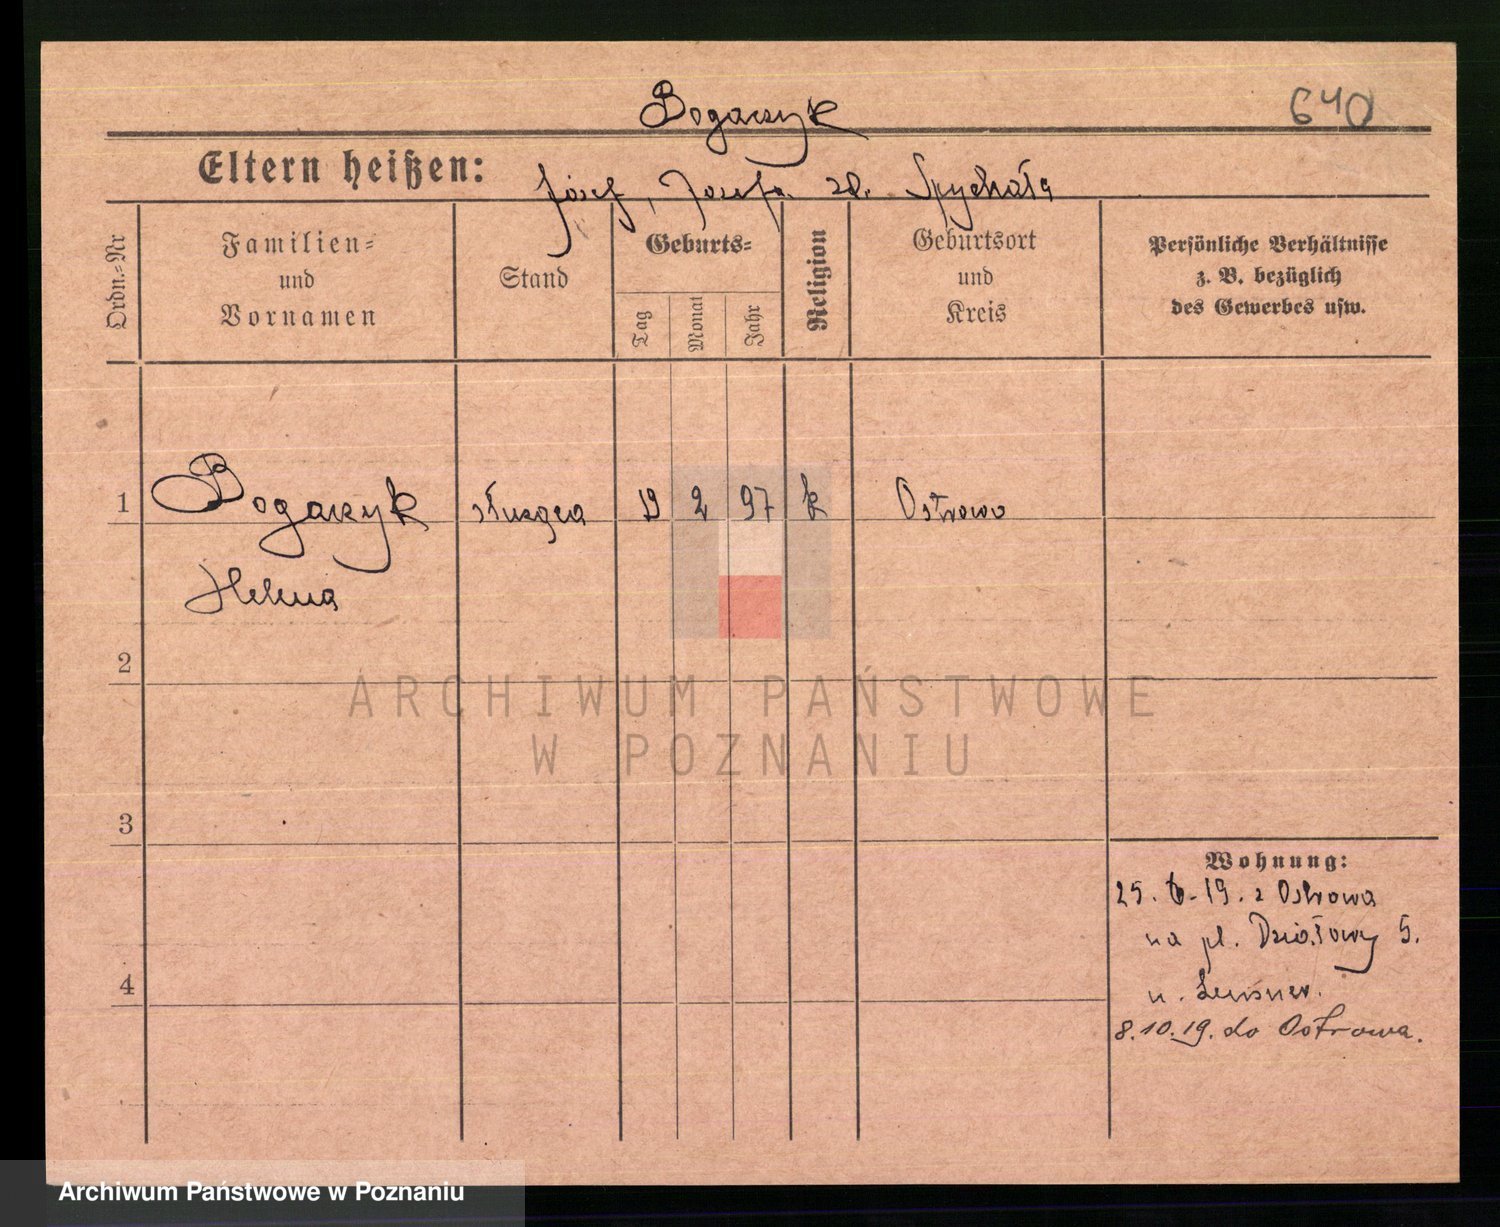 Bogaczyk
640
Eltern heißen: Józef, Józefa zd. Spychała
Ordn.=Nr
Familien=
und
Vornamen
Stand
Geburts=
Tag
Monat
Jahr
Religion
Geburtsort
und
Kreis
Persönliche Verhältnisse
z. B. bezüglich
des Gewerbes usw.
1 Bogaczyk służąca 19 2 97 k Ostrowo
Helena
2
ARCHIWUM PAŃSTWOWE
W POZNANIU
3
Wohnung:
25. 6. 19. z Ostrowa
na pl. Działowy 5.
4
u.
8.10.19. do Ostrowa.
Archiwum Państwowe w Poznaniu